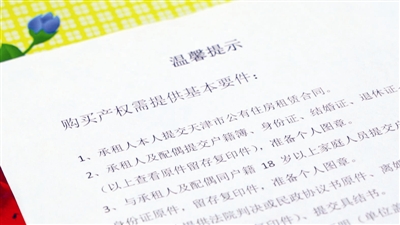 温馨提示
购买产权需提供基本要件：
1、承租人本人提交天津市公有住房租赁合同。
2、承租人及配偶提交户籍簿、身份证、结婚证、退休证
（以上查看原件留存复印件），准备个人图章。
3、与承租人及配偶同户籍 18 岁以上家庭人员提交户
身份证原件，留存复印件，准备个人图章。
提供法院判决或民政协议书原件、离婚
件），提交具结书。